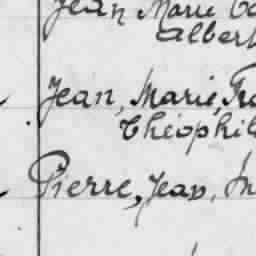 Jean Marie
Albert
Jean, Marie,
Théophil
Pierre, Jean,